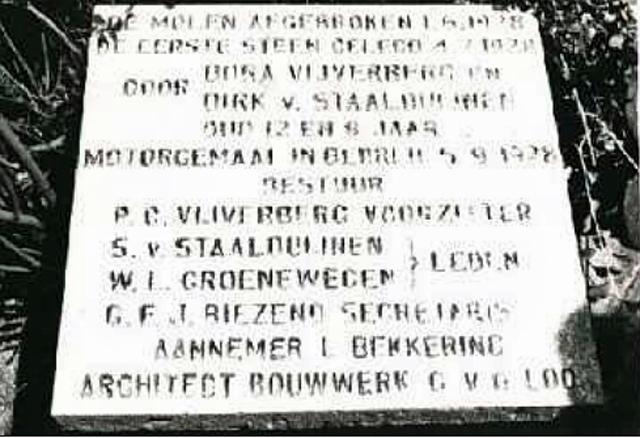 DE MOLEN AFGEBROKEN 1.6.1928
DE EERSTE STEEN GELEGD 4.7.1928
DOOR DORA VIJVERBERG EN
DIRK v. STAALDUIJNEN
OUD 12 EN 8 JAAR
MOTORGEMAAL IN BEDRIJF 5.9.1928
BESTUUR
P. C. VIJVERBERG VOORZITTER
S. v. STAALDUIJNEN
W. L. GROENEWEGEN } LEDEN
G. F. J. BIEZENO SECRETARIS
AANNEMER L. BEKKERING
ARCHITECT BOUWWERK G. v. d. LOO